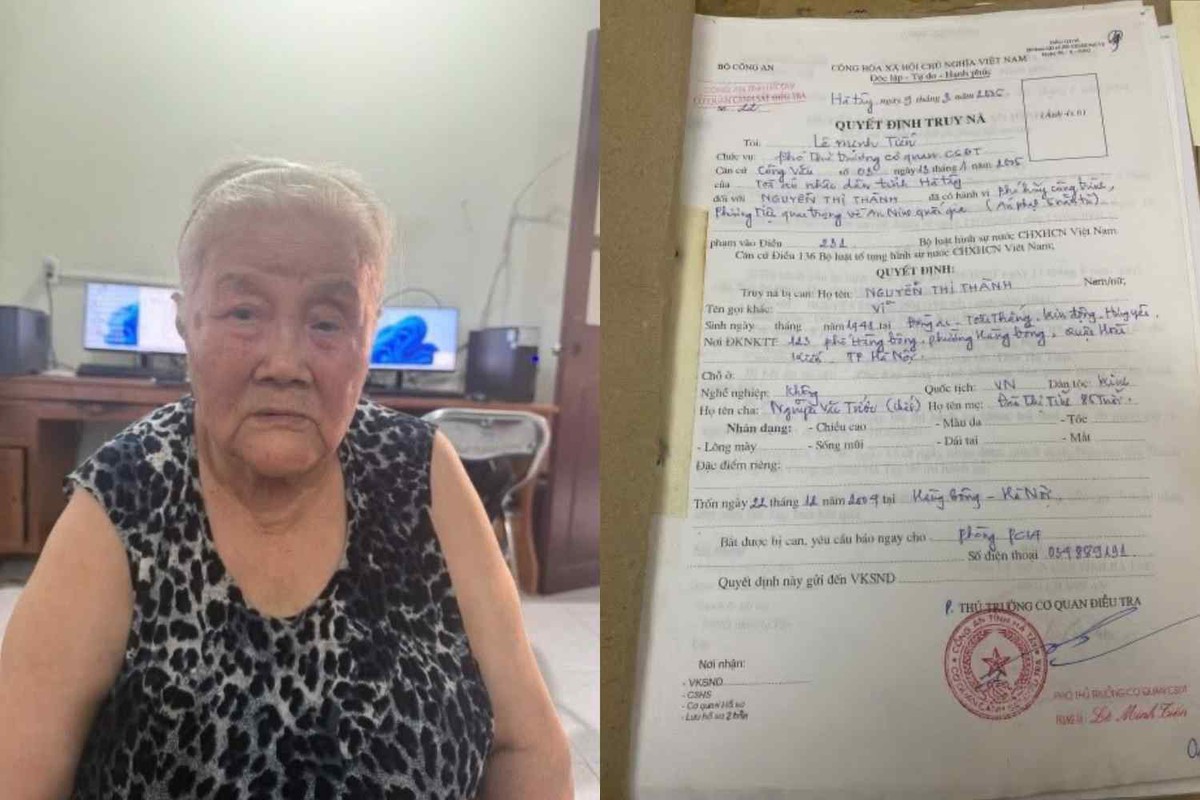 BỘ CÔNG AN
CỘNG HÒA XÃ HỘI CHỦ NGHĨA VIỆT NAM
Độc lập - Tự do - Hạnh phúc
CƠ QUAN CẢNH SÁT ĐIỀU TRA
Số 22
Hà Tây, ngày 9 tháng 3 năm 2005
(Ảnh 4x6)
QUYẾT ĐỊNH TRUY NÃ
Tôi: Lê Minh Tiến
Chức vụ: phó Thủ trưởng cơ quan CSĐT
Căn cứ Công Văn số 03 ngày 13 tháng 1 năm 2005
của Toà án nhân dân tỉnh Hà Tây
đối với NGUYỄN THỊ THÀNH đã có hành vi phá hủy công trình,
Phương tiện quan trọng về An Ninh quốc gia (Án phạt 5 năm tù)
phạm vào Điều 231 Bộ luật hình sự nước CHXHCN Việt Nam
Căn cứ Điều 136 Bộ luật tố tụng hình sự nước CHXHCN Việt Nam;
QUYẾT ĐỊNH:
Truy nã bị can: Họ tên: NGUYỄN THỊ THÀNH Nam/nữ;
Tên gọi khác:
Sinh ngày tháng năm 1941 tại Toàn Thắng, Kim Động, Hưng Yên.
Nơi ĐKNKTT 123 phố Hàng Bông, phường Hàng Bông, quận Hoàn
Kiếm TP Hà Nội.
Chỗ ở:
Nghề nghiệp: Không Quốc tịch: VN Dân tộc: Kinh
Họ tên cha: Nguyễn Văn (chết) Họ tên mẹ: Thị
Nhân dạng: - Chiều cao - Màu da - Tóc
- Lông mày - Sống mũi - Dái tai - Mắt
Đặc điểm riêng:
Trốn ngày 22 tháng 12 năm 2004 tại Hàng Bông - Hà Nội.
Bắt được bị can, yêu cầu báo ngay cho Phòng PC14
Số điện thoại 034889191
Quyết định này gửi đến VKSND
P. THỦ TRƯỞNG CƠ QUAN ĐIỀU TRA
CÔNG AN TỈNH HÀ TÂY
Nơi nhận:
- VKSND
- CSHS
- Cơ quan hồ sơ
- Lưu hồ sơ 2 bản
PHÓ THỦ TRƯỞNG CƠ QUAN CSĐT
Lê Minh Tiến